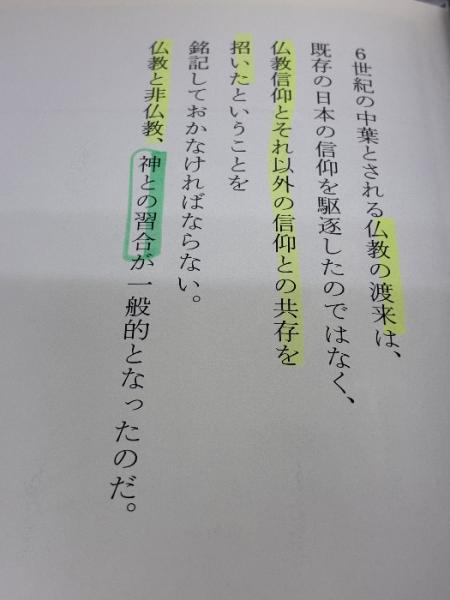 6世紀の中葉とされる仏教の渡来は、
既存の日本の信仰を駆逐したのではなく、
仏教信仰とそれ以外の信仰との共存を
招いたということを
銘記しておかなければならない。
仏教と非仏教、神との習合が一般的となったのだ。